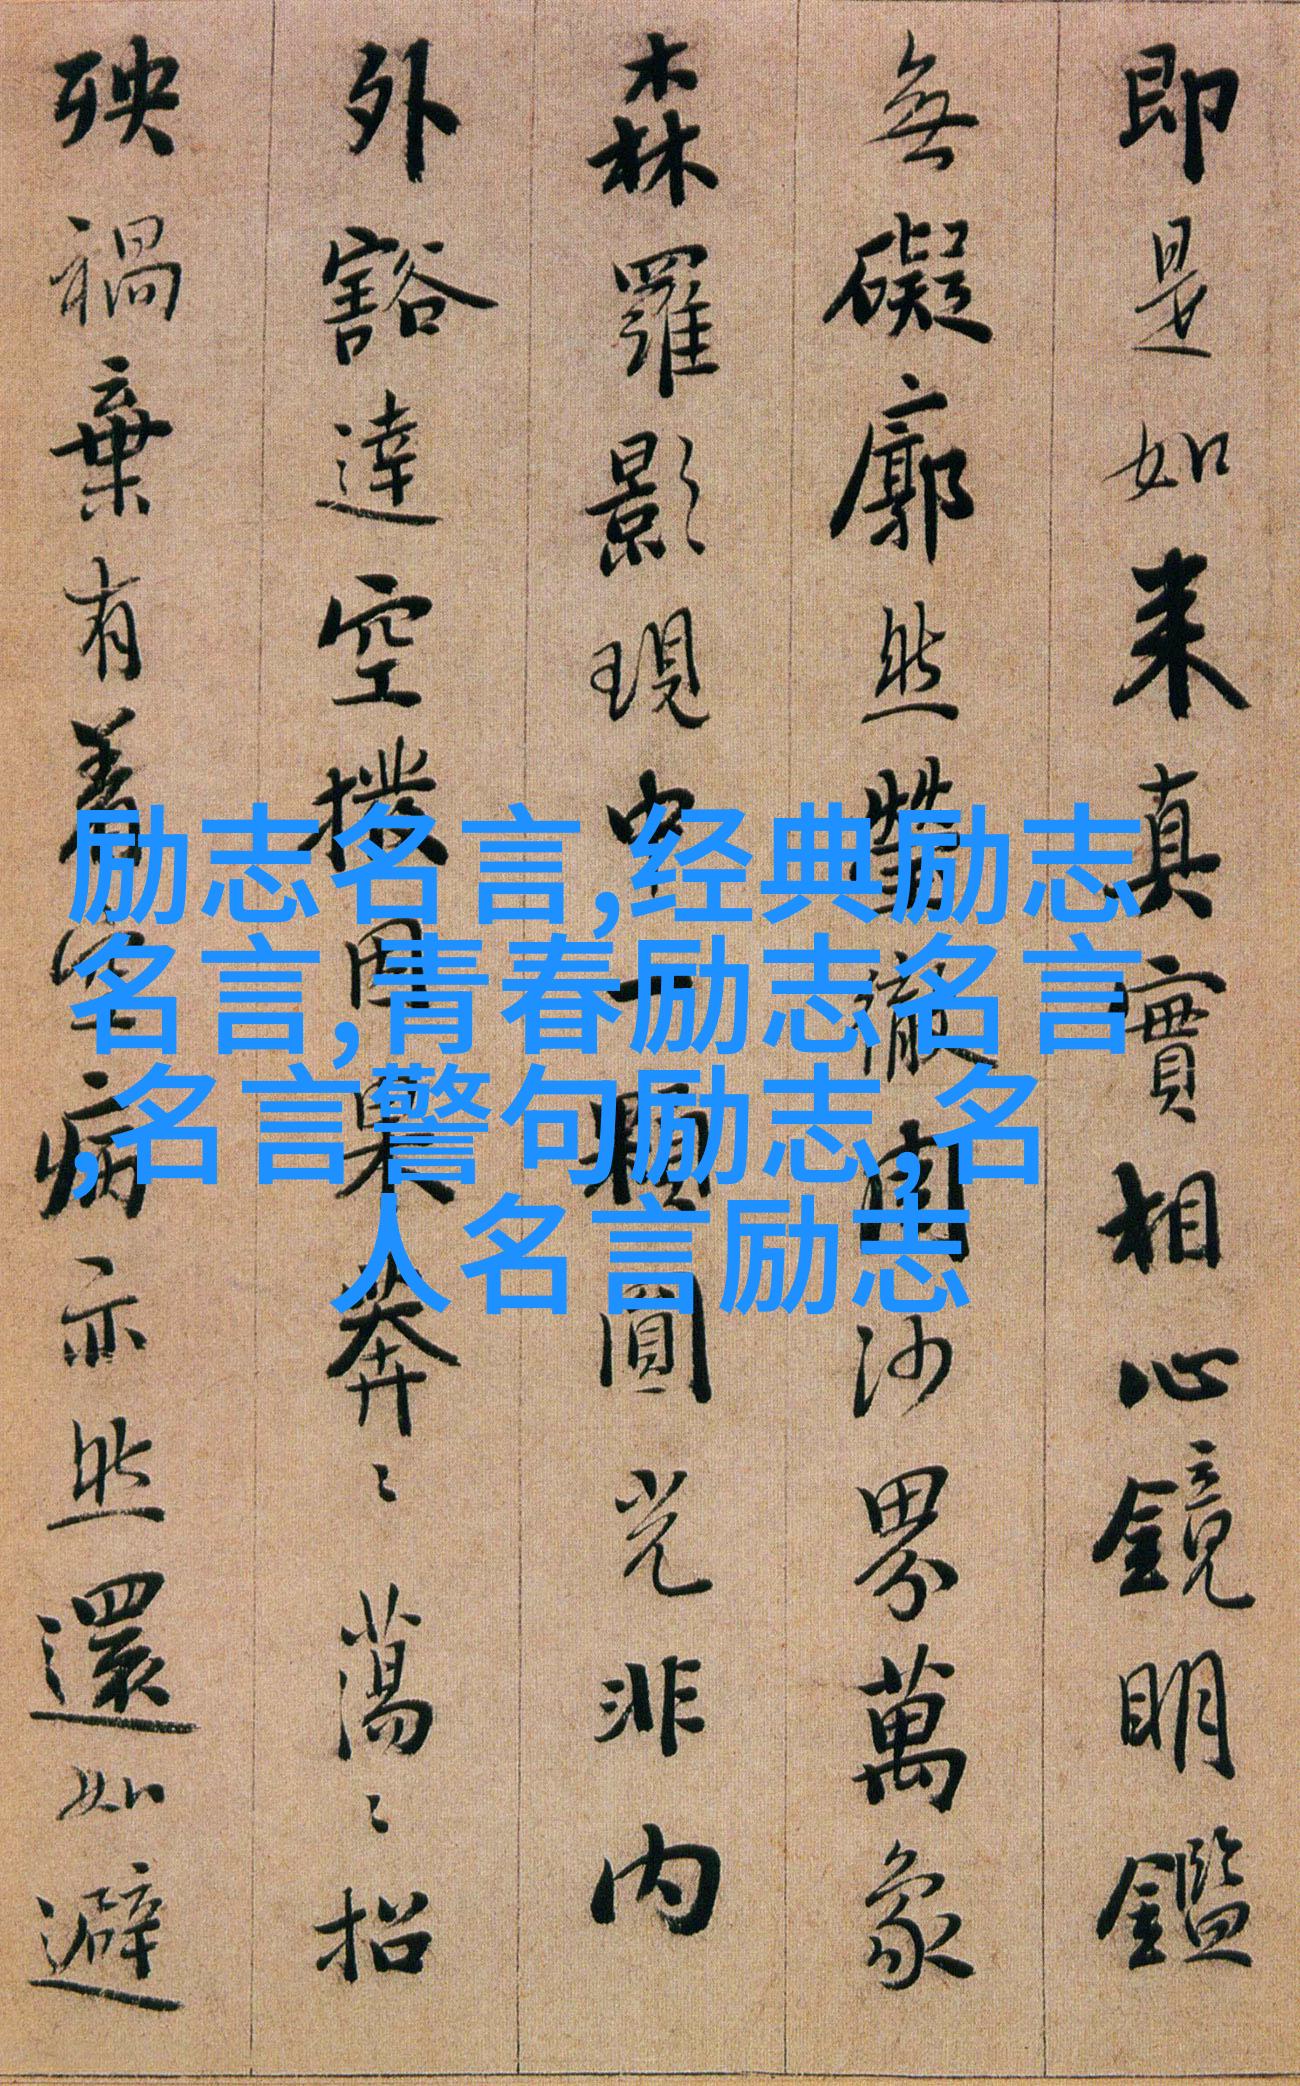 即是如来真實相心鏡明鑑
無礙廓然瑩徹周沙界萬象
森羅影現中一顆圓光非内
外豁達空撥因果莽〻蕩〻招
殃禍棄有著空病亦然還如避
励志名言,经典励志
名言,青春励志名言
,名言警句励志,名
人名言励志